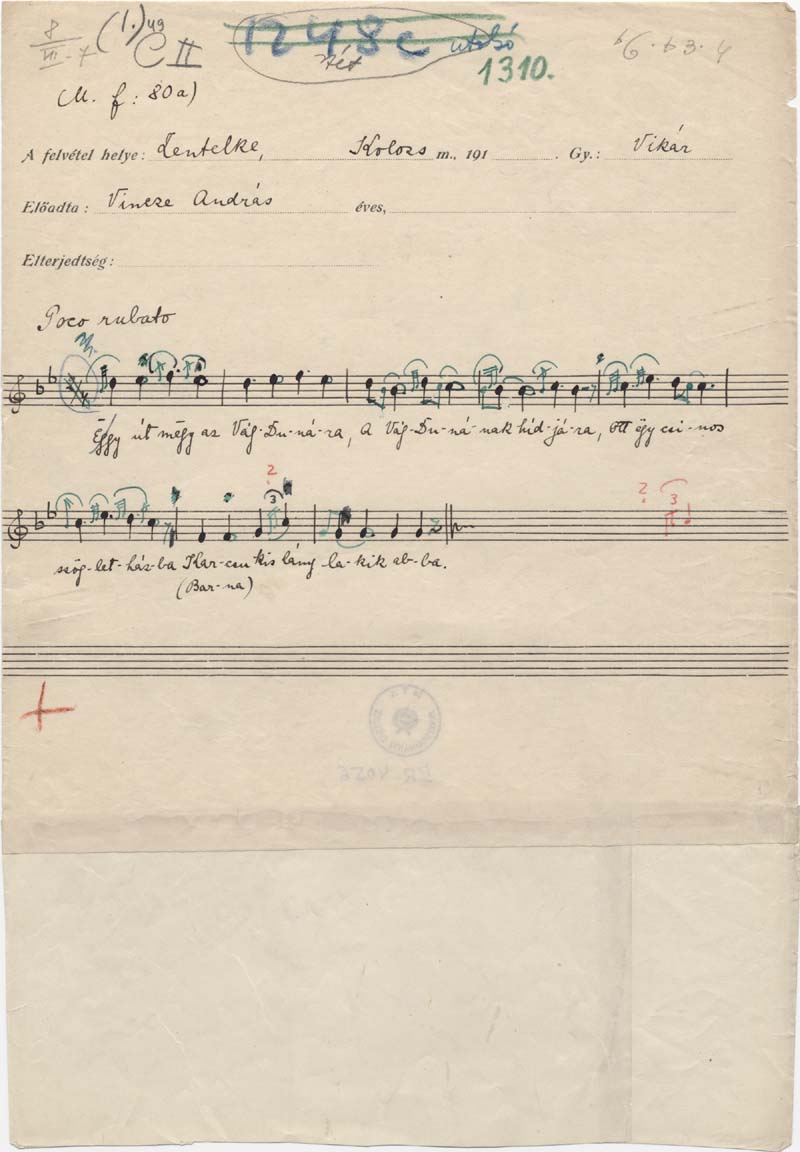 8
VII-7
(1.) ug
C II
1248c utolsó
1310.
(M. f: 80a)
A felvétel helye: Zentelke, Kolozs m., 191 . Gy.: Vikár
Előadta: Vincze András éves,
Elterjedtség:
Poco rubato
Eggy út mégy az Vág-Du-ná-ra, A Vág-Du-ná-nak híd-já-ra, Ott egy csi-nos
2 3 2 3
szög-let-ház-ba Kar-csu kis lány la-kik ab-ba.
(Bar-na)